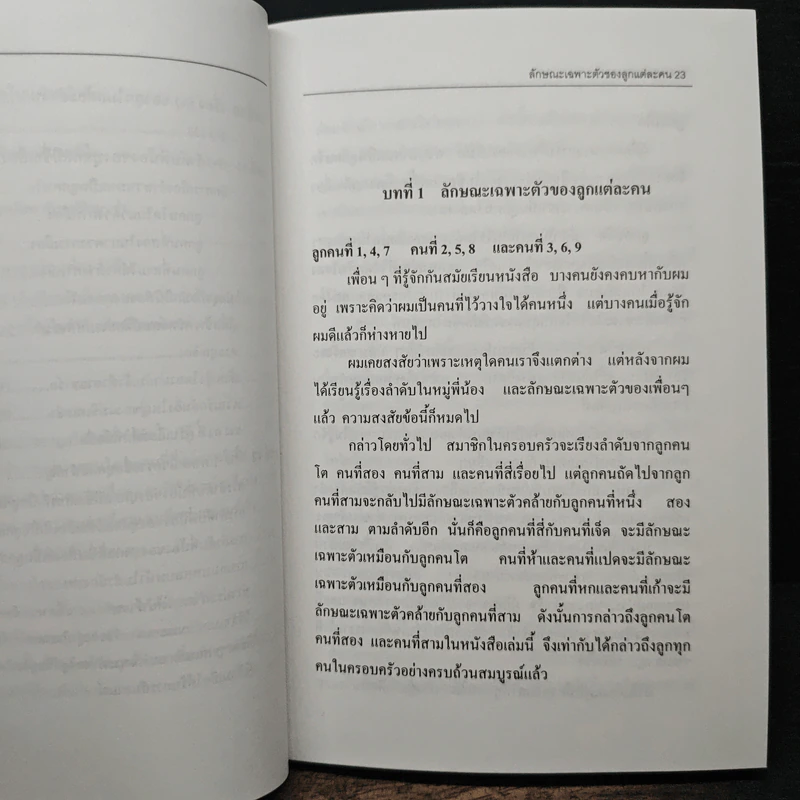 ลักษณะเฉพาะตัวของลูกแต่ละคน 23
บทที่ 1 ลักษณะเฉพาะตัวของลูกแต่ละคน
ลูกคนที่ 1, 4, 7 คนที่ 2, 5, 8 และคนที่ 3, 6, 9
เพื่อน ๆ ที่รู้จักกันสมัยเรียนหนังสือ บางคนยังคงคบหากับผม
อยู่ เพราะคิดว่าผมเป็นคนที่ไว้วางใจได้คนหนึ่ง แต่บางคนเมื่อรู้จัก
ผมดีแล้วก็ห่างหายไป
ผมเคยสงสัยว่าเพราะเหตุใดคนเราจึงแตกต่าง แต่หลังจากผม
ได้เรียนรู้เรื่องลำดับในหมู่พี่น้อง และลักษณะเฉพาะตัวของเพื่อนๆ
แล้ว ความสงสัยข้อนี้ก็หมดไป
กล่าวโดยทั่วไป สมาชิกในครอบครัวจะเรียงลำดับจากลูกคน
โต คนที่สอง คนที่สาม และคนที่สี่เรื่อยไป แต่ลูกคนถัดไปจากลูก
คนที่สามจะกลับไปมีลักษณะเฉพาะตัวคล้ายกับลูกคนที่หนึ่ง สอง
และสาม ตามลำดับอีก นั่นก็คือลูกคนที่สี่กับคนที่เจ็ด จะมีลักษณะ
เฉพาะตัวเหมือนกับลูกคนโต คนที่ห้าและคนที่แปดจะมีลักษณะ
เฉพาะตัวเหมือนกับลูกคนที่สอง ลูกคนที่หกและคนที่เก้าจะมี
ลักษณะเฉพาะตัวคล้ายกับลูกคนที่สาม ดังนั้นการกล่าวถึงลูกคนโต
คนที่สอง และคนที่สามในหนังสือเล่มนี้ จึงเท่ากับได้กล่าวถึงลูกทุก
คนในครอบครัวอย่างครบถ้วนสมบูรณ์แล้ว